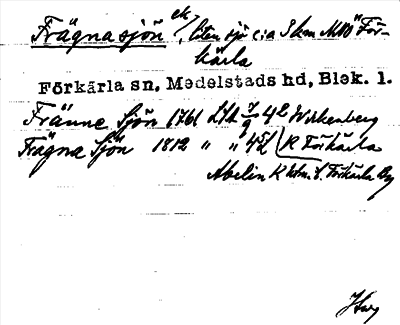 Frägnasjön ek., liten sjö c:a 3 km NNO För-
kärla
Förkärla sn, Medelstads hd, Blek. l.
Fränne Sjön 1761 42 Wirkenberg
Frägna Sjön 1812 " " 42 K Förkärla
Abelin K Förkärla